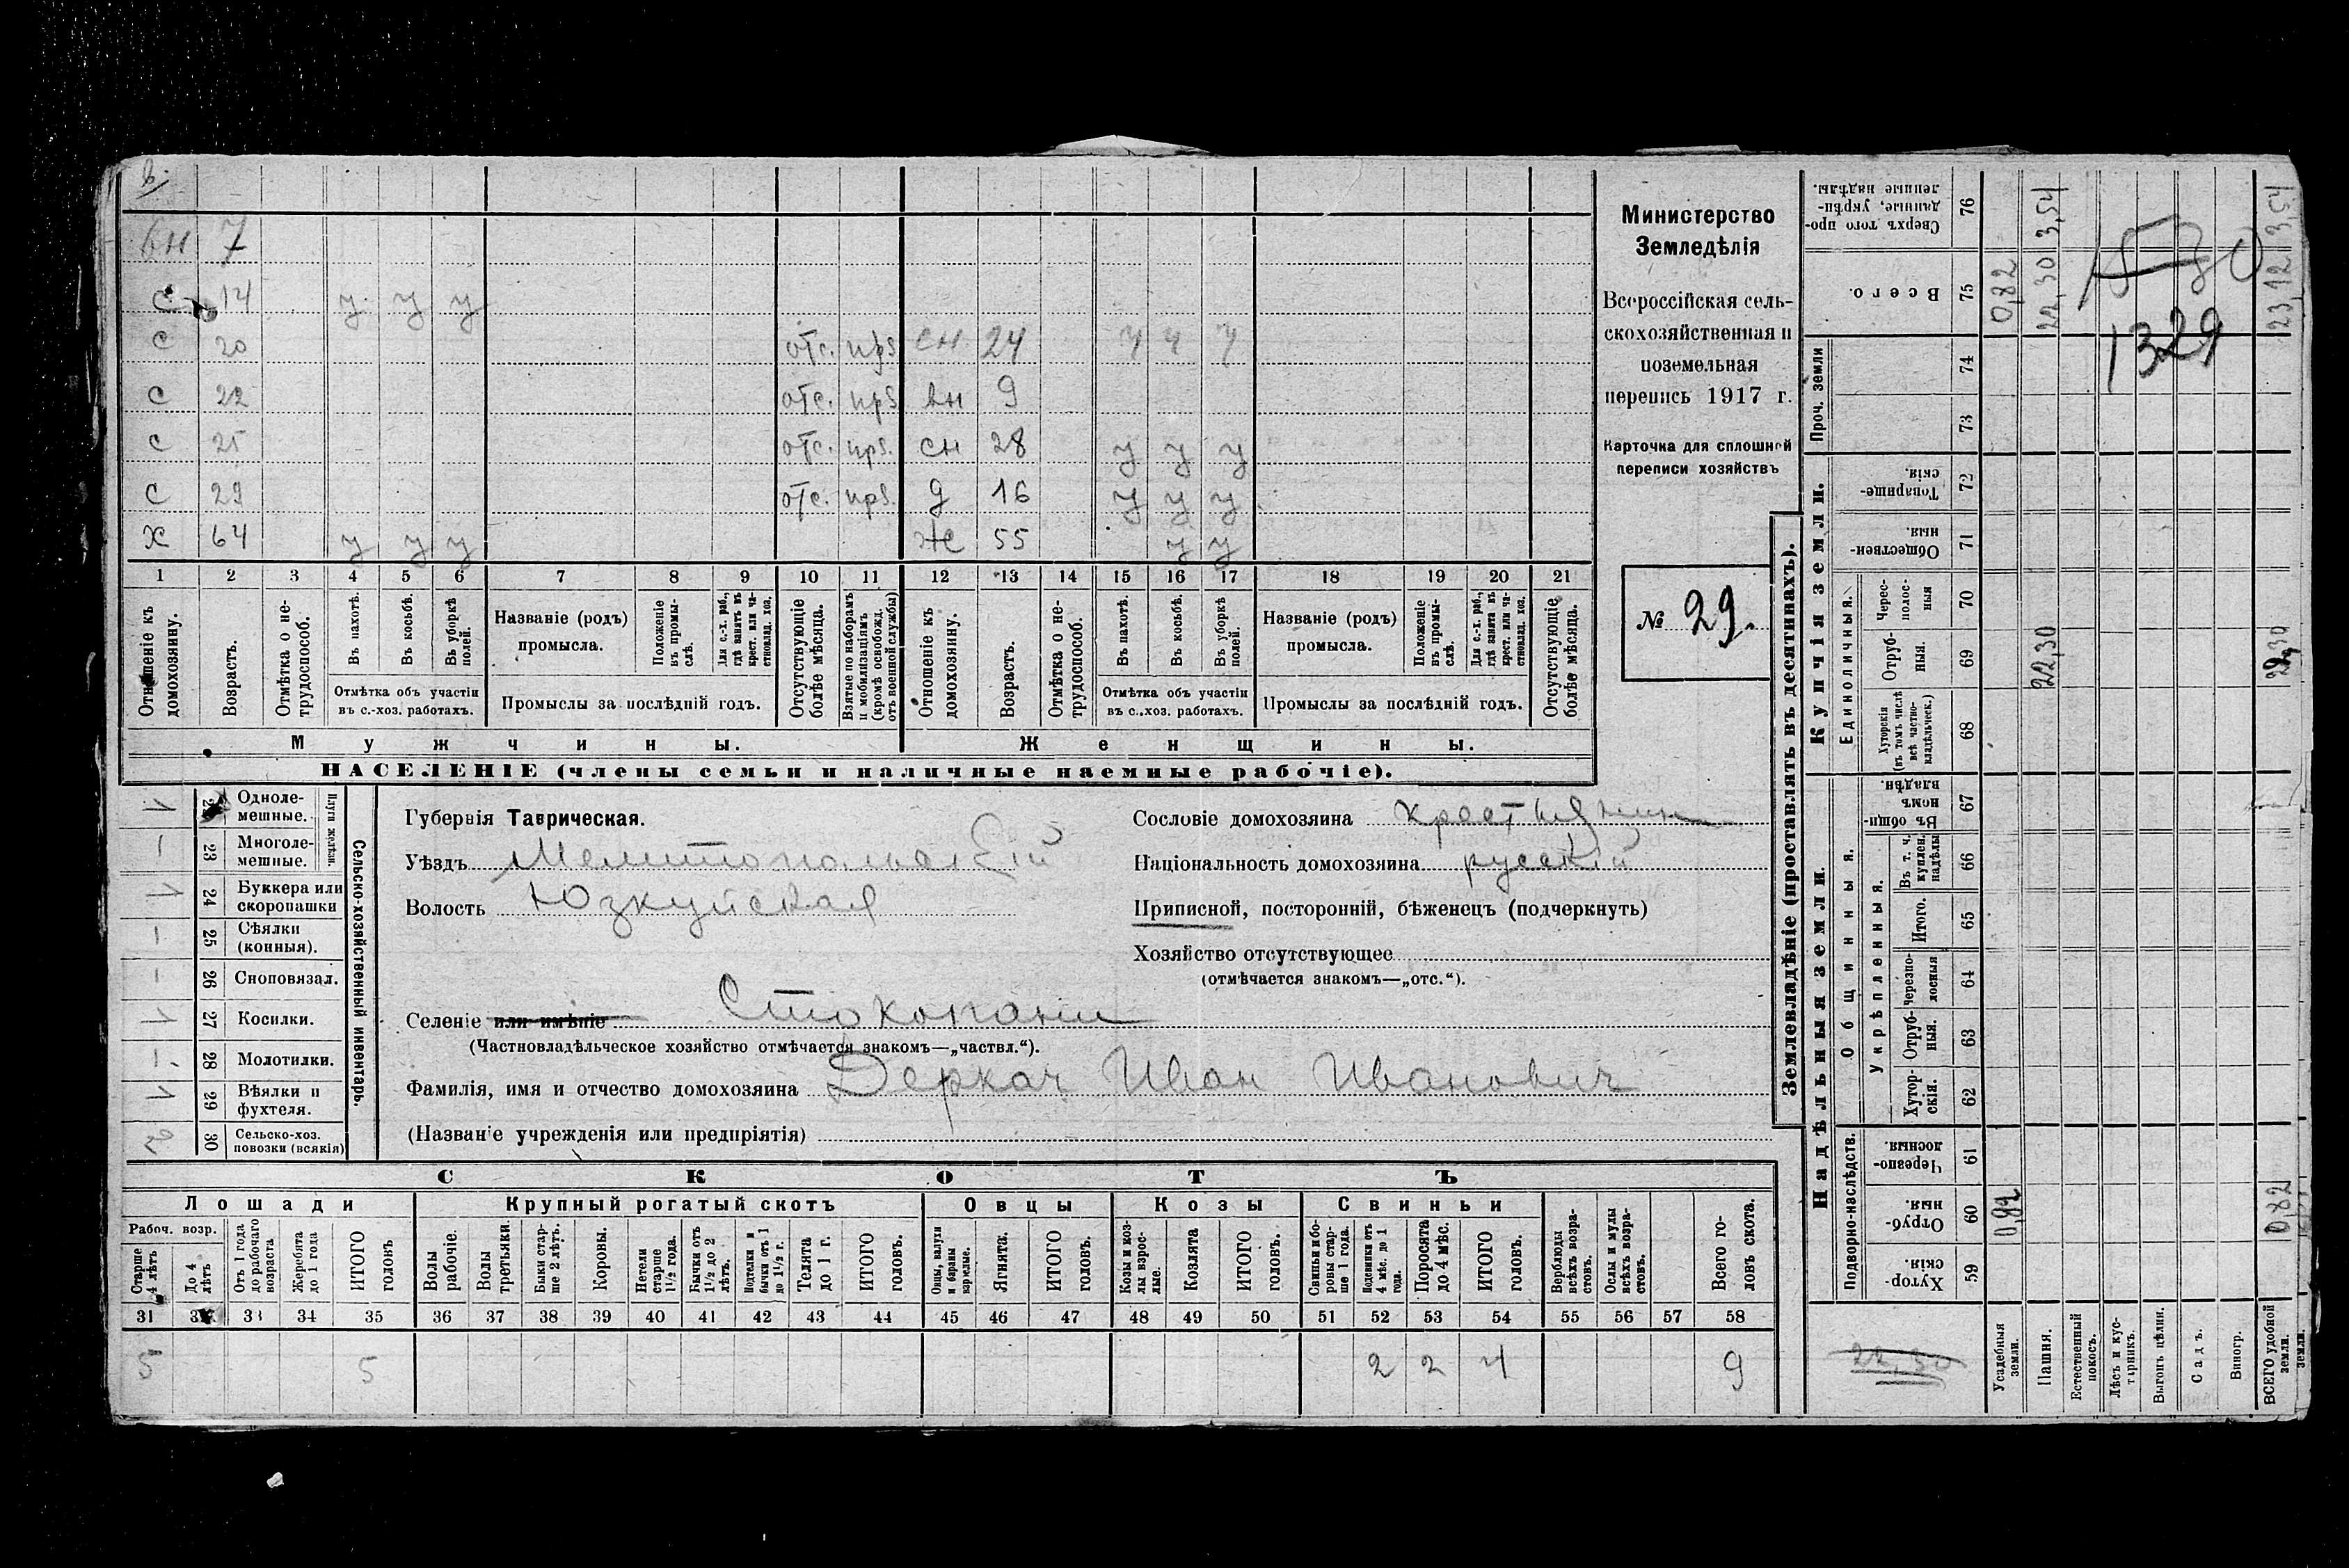 6.
вн 7
с 14 у у у
с 20 отс. прз сн 24 у у у
с 22 отс. прз вн 9
с 25 отс. прз. сн 28 у у у
с 29 отс. прз. д 16 у у у
х 64 у у у ж 55 у у
1 2 3 4 5 6 7 8 9 10 11 12 13 14 15 16 17 18 19 20 21
Отношеніе къ домохозяину.
Возрастъ.
Отмѣтка о нетрудоспособ.
Въ пахотѣ.
Въ косьбѣ.
Въ уборкѣ полей.
Отмѣтка объ участіи въ с.-хоз. работахъ.
Названіе (родъ) промысла.
Положеніе въ промыслѣ.
Для с.-х. раб., гдѣ занятъ въ крест. или частновлад. хоз.
Промыслы за послѣдній годъ.
Отсутствующіе болѣе мѣсяца.
Взятые по наборамъ и мобилизаціямъ (кромѣ освобожд. отъ военной службы)
Отношеніе къ домохозяину.
Возрастъ.
Отмѣтка о нетрудоспособ.
Въ пахотѣ.
Въ косьбѣ.
Въ уборкѣ полей.
Отмѣтка объ участіи въ с.-хоз. работахъ.
Названіе (родъ) промысла.
Положеніе въ промыслѣ.
Для с.-х. раб., гдѣ занята въ крест. или частновлад. хоз.
Промыслы за послѣдній годъ.
Отсутствующіе болѣе мѣсяца.
Мужчины.
Женщины.
НАСЕЛЕНІЕ (члены семьи и наличные наемные рабочіе).
Министерство
Земледѣлія
Всероссійская сель-
скохозяйственная и
поземельная
перепись 1917 г.
Карточка для сплошной
переписи хозяйствъ
№ 29.
Плуги желѣзн.
Однолемешные. 1
23 Многолемешные. –
24 Буккера или скоропашки 1
25 Сѣялки (конныя). –
26 Сноповязал. –
27 Косилки. 1
28 Молотилки. –
29 Вѣялки и фухтеля. 1
30 Сельско-хоз. повозки (всякія) 2
Сельско-хозяйственный инвентарь.
Губернія Таврическая.
Уѣздъ Мелитопольскій
Волость Юзкуйская
Селеніе или имѣніе Стокопани
(Частновладѣльческое хозяйство отмѣчается знакомъ—„частвл.“).
Фамилія, имя и отчество домохозяина Деркач Иван Иванович
(Названіе учрежденія или предпріятія)
Сословіе домохозяина крестьянин
Національность домохозяина русскій
Приписной, посторонній, бѣженецъ (подчеркнуть)
Хозяйство отсутствующее
(отмѣчается знакомъ—„отс.“).
СКОТЪ
Лошади
Рабоч. возр.
Старше 4 лѣтъ
До 4 лѣтъ
Отъ 1 года до рабочаго возраста
Жеребята до 1 года
ИТОГО головъ
Крупный рогатый скотъ
Волы рабочіе.
Волы третьяки.
Быки старше 2 лѣтъ.
Коровы.
Нетели старше 1½ года.
Бычки отъ 1½ до 2 лѣтъ.
Подтелки и бычки отъ 1 до 1½ г.
Телята до 1 г.
ИТОГО головъ.
Овцы
Овцы, валухи и бараны взрослые.
Ягнята.
ИТОГО головъ.
Козы
Козы и козлы взрослые.
Козлята
ИТОГО головъ.
Свиньи
Свиньи и боровы старше 1 года.
Подсвинки отъ 4 мѣс. до 1 года.
Поросята до 4 мѣс.
ИТОГО головъ.
Верблюды всѣхъ возрастовъ.
Ослы и мулы всѣхъ возрастовъ.
Всего головъ скота.
31 32 33 34 35 36 37 38 39 40 41 42 43 44 45 46 47 48 49 50 51 52 53 54 55 56 57 58
5 5 2 2 4 9
Землевладѣніе (проставлять въ десятинахъ).
Купчія земли.
Надѣльныя земли.
Сверхъ того проданные, укрѣпленные надѣлы. 76 3,54 3,54
Всего. 75 0,82 22,30 23,12
1329
Проч. земли 74 73
Товарищескія. 72
Общественныя. 71
Единоличныя.
Чересполосныя 70
Отрубныя. 69 22,30 22,30
Хуторскія (въ томъ числѣ всѣ частновладѣльческ.) 68
Общинныя.
Въ общинномъ владѣн. 67
Укрѣпленныя.
Въ т. ч. куплен. надѣлы 66
Итого. 65
Черезполосныя 64
Отрубныя. 63
Хуторскія. 62
Подворно-наслѣдств.
Черезполосныя. 61
Отрубныя. 60 0,82 0,82
Хуторскія. 59
22,30
Усадебныя земли.
Пашня.
Естественный покосъ.
Лѣсъ и кустарникъ.
Выгонъ цѣлин.
Садъ.
Виногр.
ВСЕГО удобной земли.